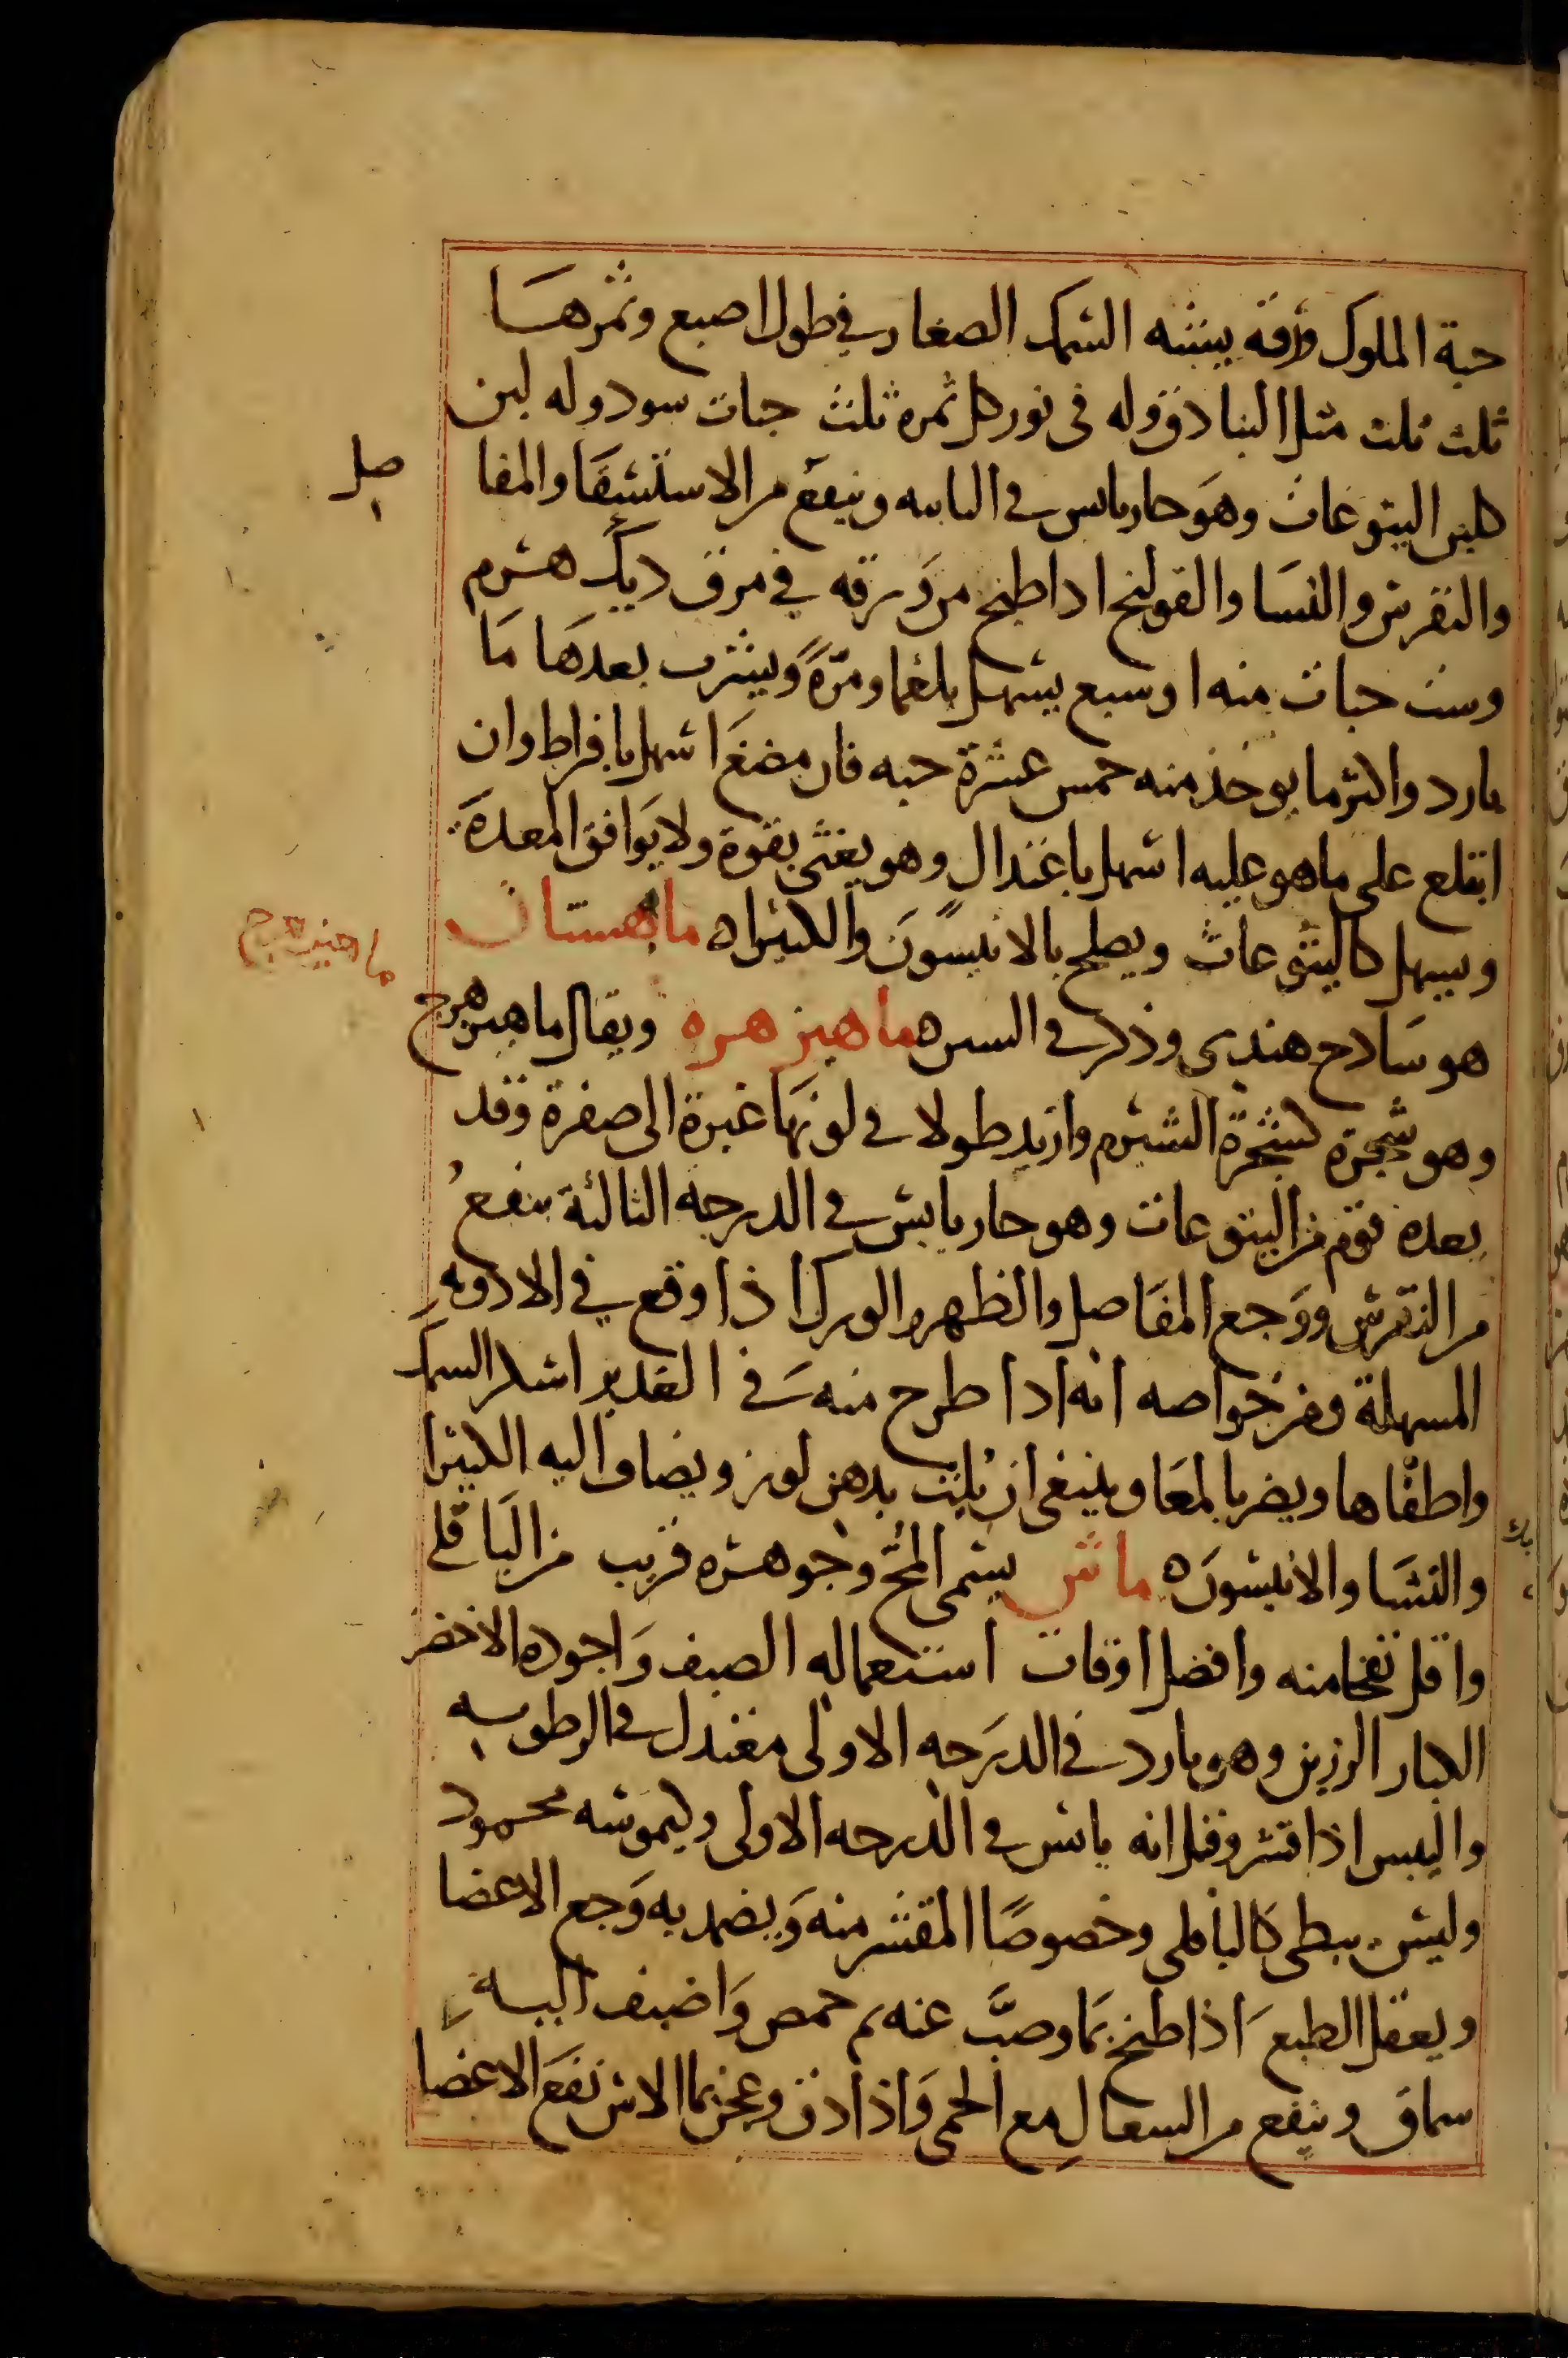 حبة الملوك ورقه يشبه السمك الصغار في طول اصبع وثمرها
ثلث ثلث مثل البنادق وله في نور كل ثمره ثلث حبات سود وله لبن
كلبن اليتوعات وهو حار يابس في الثانيه وينفع من الاستسقا والمفا
صل
والنقرس والنسا والقولنج اذا طبخ من ورقه في مرق ديك هرم
وست حبات منه او سبع يسهل بلغما ومرة ويشرب بعدها ما
بارد واكثر ما يوخذ منه خمس عشرة حبه فان مضغ اسهل بافراط وان
ابتلع على ما هو عليه اسهل باعتدال وهو يغثي بقوة ولا يوافق المعدة
ويسهل كاليتوعات ويصلح بالانيسون والكثيرا ه ماهستان
هو سادح هندي وذكر في السين ه ماهيزهره ويقال ماهيزهرج
ماهيزهرج
وهو شجرة كشجرة الشبرم وازيد طولا في لونها غبرة الى صفرة وقد
يعده قوم من اليتوعات وهو حار يابس في الدرجه الثالثة ينفع
من النقرس ووجع المفاصل والظهر والورك اذا وقع في الادويه
المسهلة ومن خواصه انه اذا طرح منه في الغدير اسكر السمك
واطفاها ويضر بالمعا وينبغي ان يلت بدهن لوز ويضاف اليه الكثيرا
والنشا والانيسون ه ماش يسمى المج وجوهره قريب من الباقلى
واقل نفخا منه وافضل اوقات استعماله الصيف واجوده الاخضر
الكبار الرزين وهو بارد في الدرجه الاولى معتدل في الرطوبه
واليبس اذا قشر وقيل انه يابس في الدرجه الاولى وكيموسه محمود
وليس ببطي كالباقلى وخصوصا المقشر منه ويضمد به وجع الاعضا
ويعقل الطبع اذا طبخ بما وصب عنه ثم حمص واضيف اليه
سماق وينفع من السعال مع الحمى واذا دق وعجن بما الاس نفع الاعضا